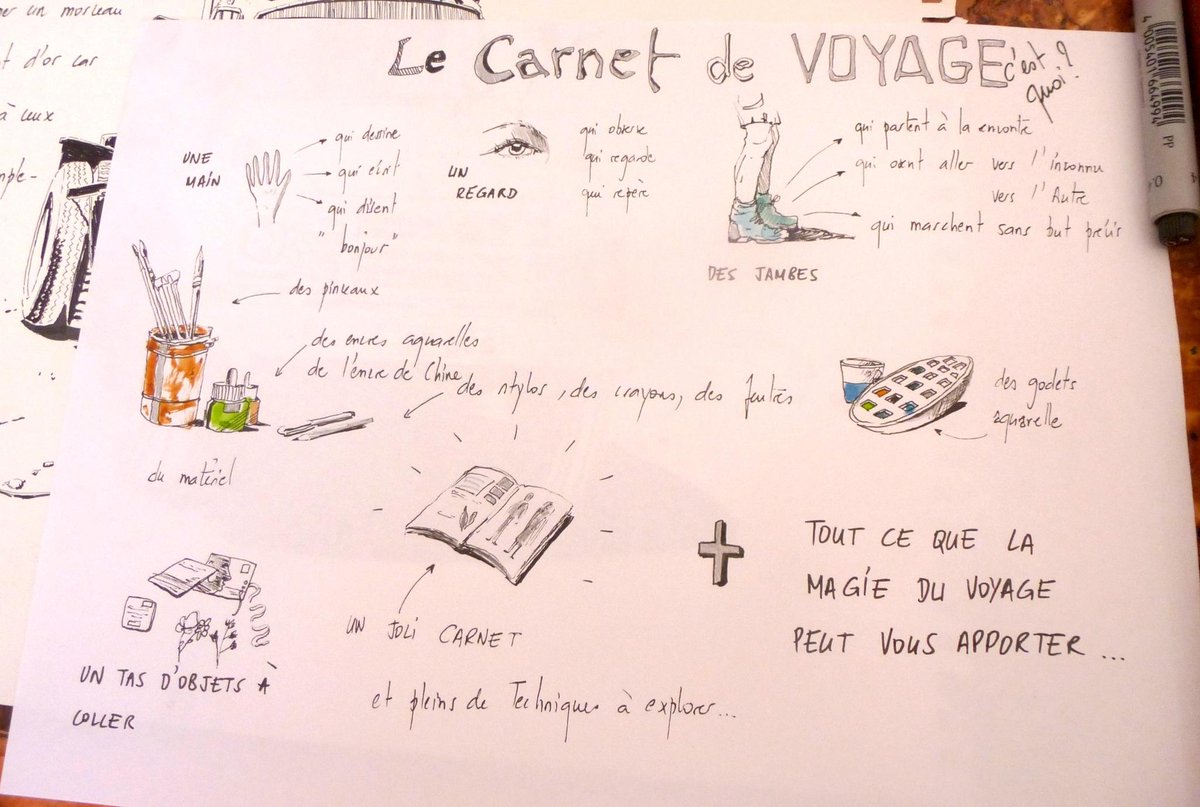 er un morceau
t d'or car
à ceux
mple-
Le Carnet de VOYAGE c'est quoi ?
UNE MAIN
qui dessine
qui écrit
qui disent
"bonjour"
UN REGARD
qui observe
qui regarde
qui repère
qui partent à la rencontre
qui osent aller vers l'inconnu
vers l'Autre
qui marchent sans but précis
DES JAMBES
des pinceaux
des encres aquarelles
de l'encre de Chine
des stylos, des crayons, des feutres
des godets
aquarelle
du matériel
UN JOLI CARNET
TOUT CE QUE LA
MAGIE DU VOYAGE
PEUT VOUS APPORTER ...
UN TAS D'OBJETS À
COLLER
et pleins de Techniques à explorer...
4 005401 664994
PP